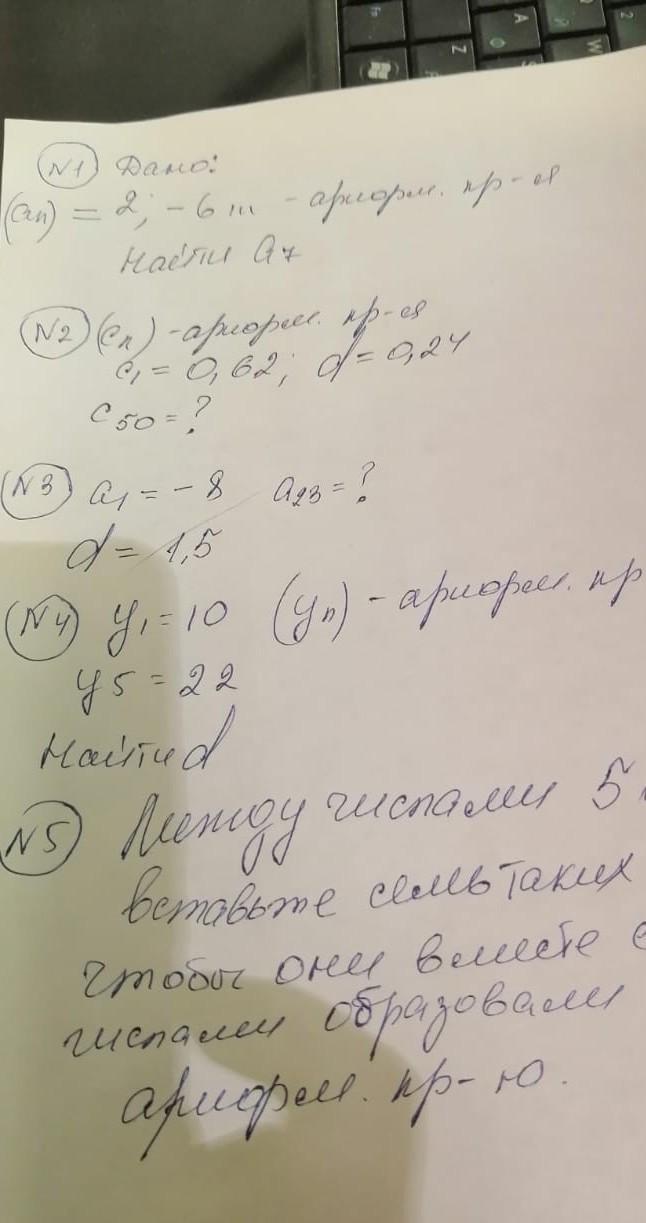 N1 Дано:
(an) = 2; -6 ... - арифм. пр-я
Найти a7
N2 (cn) - арифм. пр-я
c1 = 0,62; d = 0,24
c50 = ?
N3 a1 = -8 a23 = ?
d = 1,5
N4 y1 = 10 (yn) - арифм. пр
y5 = 22
Найти d
N5 Между числами 5
вставьте семь таких
чтобы они вместе с
числами образовали
арифм. пр-ю.